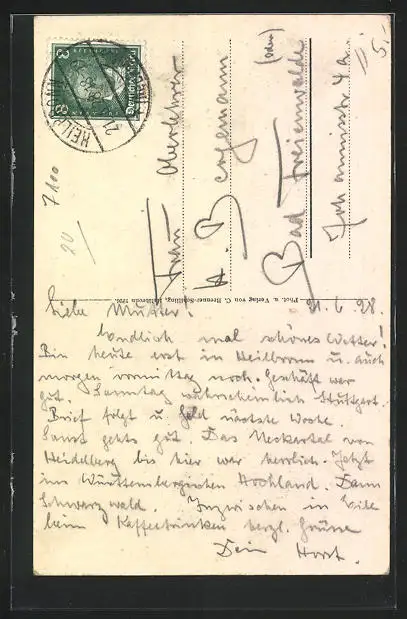 Liebe Mutter! 21.6.28.
Endlich mal schönes Wetter!
Bin heute erst in Heilbronn u. auch
morgen vormittag noch. Geschäft war
gut. Sonntag wahrscheinlich Stuttgart.
Brief folgt u. Geld nächste Woche.
Sonst gehts gut. Das Neckartal von
Heidelberg bis hier war herrlich. Jetzt
ins Württembergischen Hochland. Dann
Schwarzwald. Inzwischen in Eile
beim Kaffeetrinken herzl. Grüsse
Dein Horst.
Frau Oberlehrer
Bad Freienwalde
(Oder)
Phot. u. Verlag von C. Brenner-Schilling, Heilbronn
Deutsches Reich
8
7100
20